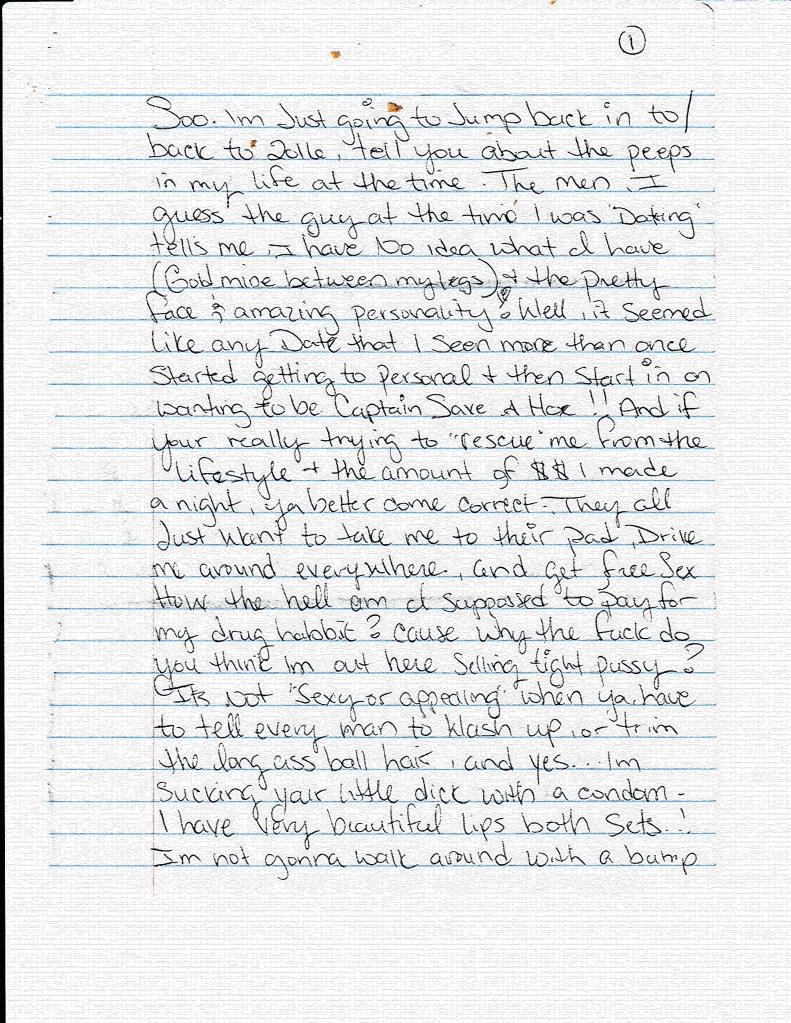 ①
Soo. Im Just going to Jump back in to/
back to 2016, tell you about the peeps
in my life at the time. The men, I
guess the guy at the time I was "Dating"
tells me I have No idea what I have
(Gold mine between my legs) & the pretty
face & amazing personality! Well, it seemed
like any Date that I seen more than once
Started getting to personal & then start in on
wanting to be Captain Save A Hoe!! And if
your really trying to "rescue" me from the
"lifestyle & the amount of $$ I made
a night, ya better come correct. They all
Just want to take me to their pad, Drive
me around everywhere, and get free Sex
How the hell am I suppossed to pay for
my drug habbit? cause why the fuck do
you think Im out here selling tight pussy?
Its not "Sexy or appealing" when ya have
to tell every man to Wash up, or trim
the long ass ball hair, and yes... Im
Sucking your little dick with a condom -
I have very beautiful lips both sets..!
Im not gonna walk around with a bump